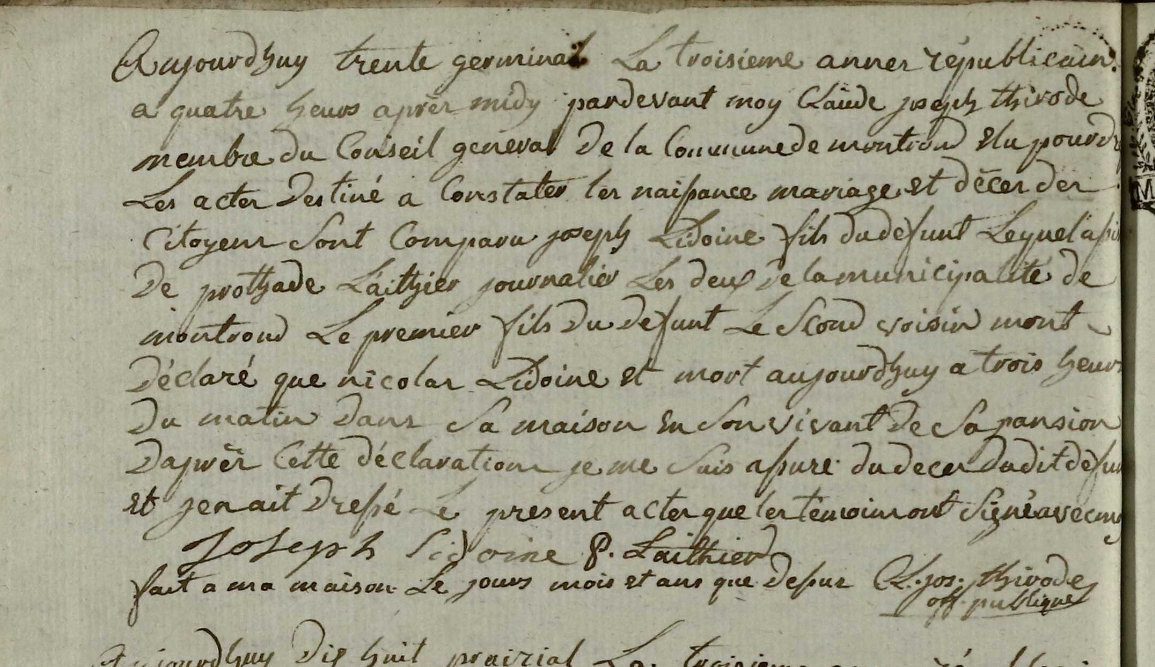 Aujourdhuy trente germinal La troisieme anner républicain
a quatre heurs aprèr midy pardevant moy Claude joseph thirode
membre du Conseil general De la Commune de montrond Elu pour
Les acter Destiné a Constater ler naissance mariage et décer der
Citoyenr Sont Comparu joseph Lidoine fils du defunt Lequel
De prothade Laithier journalier Les deux De la municipalité de
montrond Le premier fils Du defunt Le Scond voisin mont
Déclaré que nicolar Lidoine et mort aujourdhuy a trois heurs
Du matin Danr Sa maison En Son vivant De Sa pansion
Daprèr Cette déclaration je me Suis assuré du decer Dudit defun
Et jen ait Dressé Le present acter que ler temoin ont Signé avec moy
Joseph Lidoine P. Laithier
fait a ma maison Le jours mois et ans que Desur Cl. jos. thirode
off. publique
Aujourdhuy Dix huit prairial La troisieme